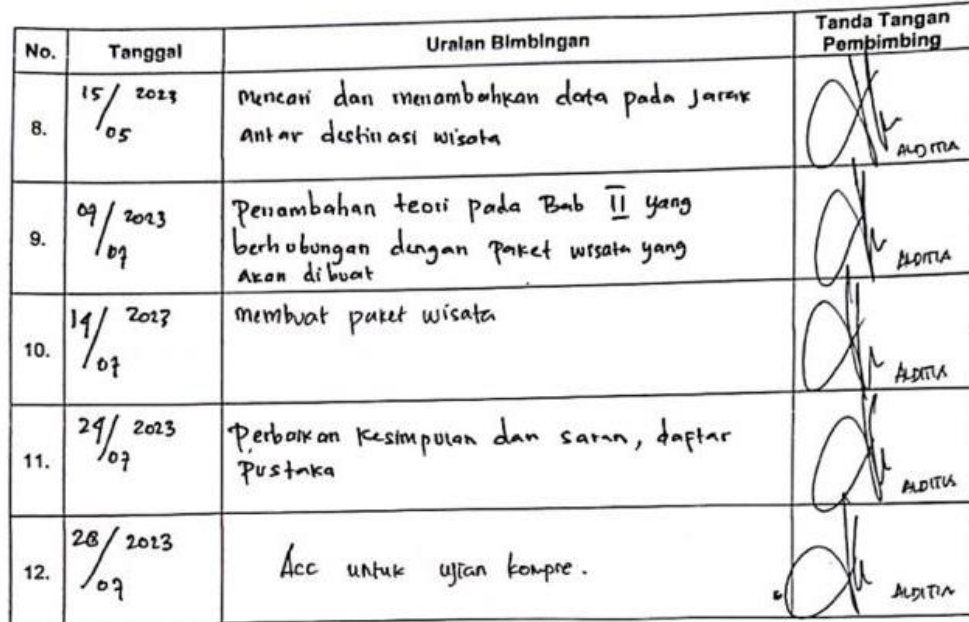 No. Tanggal Uraian Bimbingan Tanda Tangan Pembimbing
8. 15/05 2023 Mencari dan menambahkan data pada Jarak
antar destinasi wisata
ALDITIA
9. 09/07 2023 Penambahan teori pada Bab II yang
berhubungan dengan Paket wisata yang
akan dibuat
ALDITIA
10. 14/07 2023 membuat paket wisata
ALDITIA
11. 24/07 2023 Perbaikan Kesimpulan dan saran, daftar
Pustaka
ALDITIA
12. 28/07 2023 Acc untuk ujian kompre.
ALDITIA